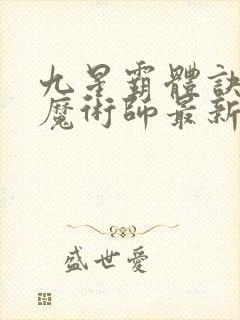 九星霸體訣
魔術師最新
盛世愛